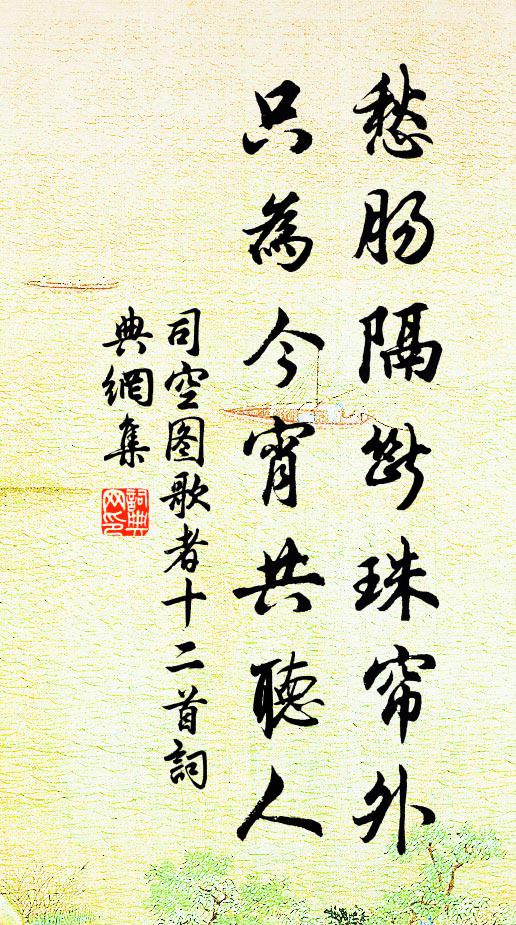 愁肠隔断珠帘外
只為今宵共聽人
司空图歌者十二首詞
典網集
詞典
网印